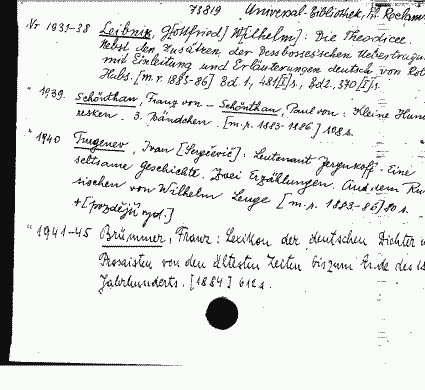 73819 Universal-Bibliothek, Ph. Reclam
Nr 1931-38 Leibniz, G[ottfried] W[ilhelm]: Die Theodicee.
Nebst den Zusätzen der Desbosses'schen Uebertragu
mit Einleitung und Erläuterungen deutsch von Rob
Habs. [m.r. 1883-86] Bd 1., 481[I]s., Bd 2. 370[II]s.
" 1939. Schönthan, Franz von - Schönthan, Paul von: Kleine Humo
resken. 3. Bändchen. [m.r. 1883-1886] 108 s.
" 1940 Turgenev, Ivan [Sergěevič]: Leutenant Jergunkoff. Eine
seltsame Geschichte. Zwei Erzählungen. Aus dem Rus
sischen von Wilhelm Lange [m.r. 1883-86] 80 s.
+ [později vyd.]
" 1941-45 Brümmer, Franz: Lexikon der deutschen Dichter u
Prosaisten von den ältesten Zeiten bis zum Ende des 18
Jahrhunderts. [1884] 612 s.